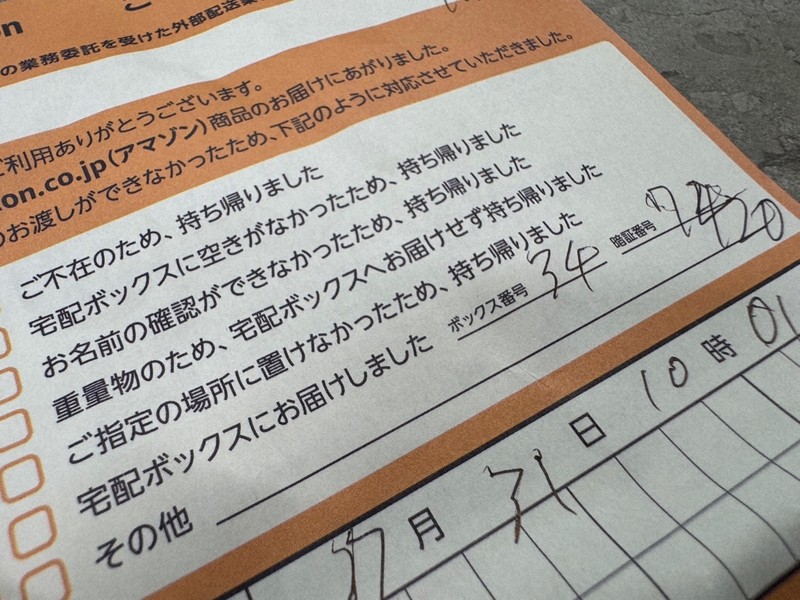 on
の業務委託を受けた外部配送業
ご利用ありがとうございます。
zon.co.jp(アマゾン)商品のお届けにあがりました。
のお渡しができなかったため、下記のように対応させていただきました。
ご不在のため、持ち帰りました
宅配ボックスに空きがなかったため、持ち帰りました
お名前の確認ができなかったため、持ち帰りました
重量物のため、宅配ボックスへお届けせず持ち帰りました
ご指定の場所に置けなかったため、持ち帰りました
宅配ボックスにお届けしました ボックス番号 34 暗証番号
その他
月 31 日 10 時 01